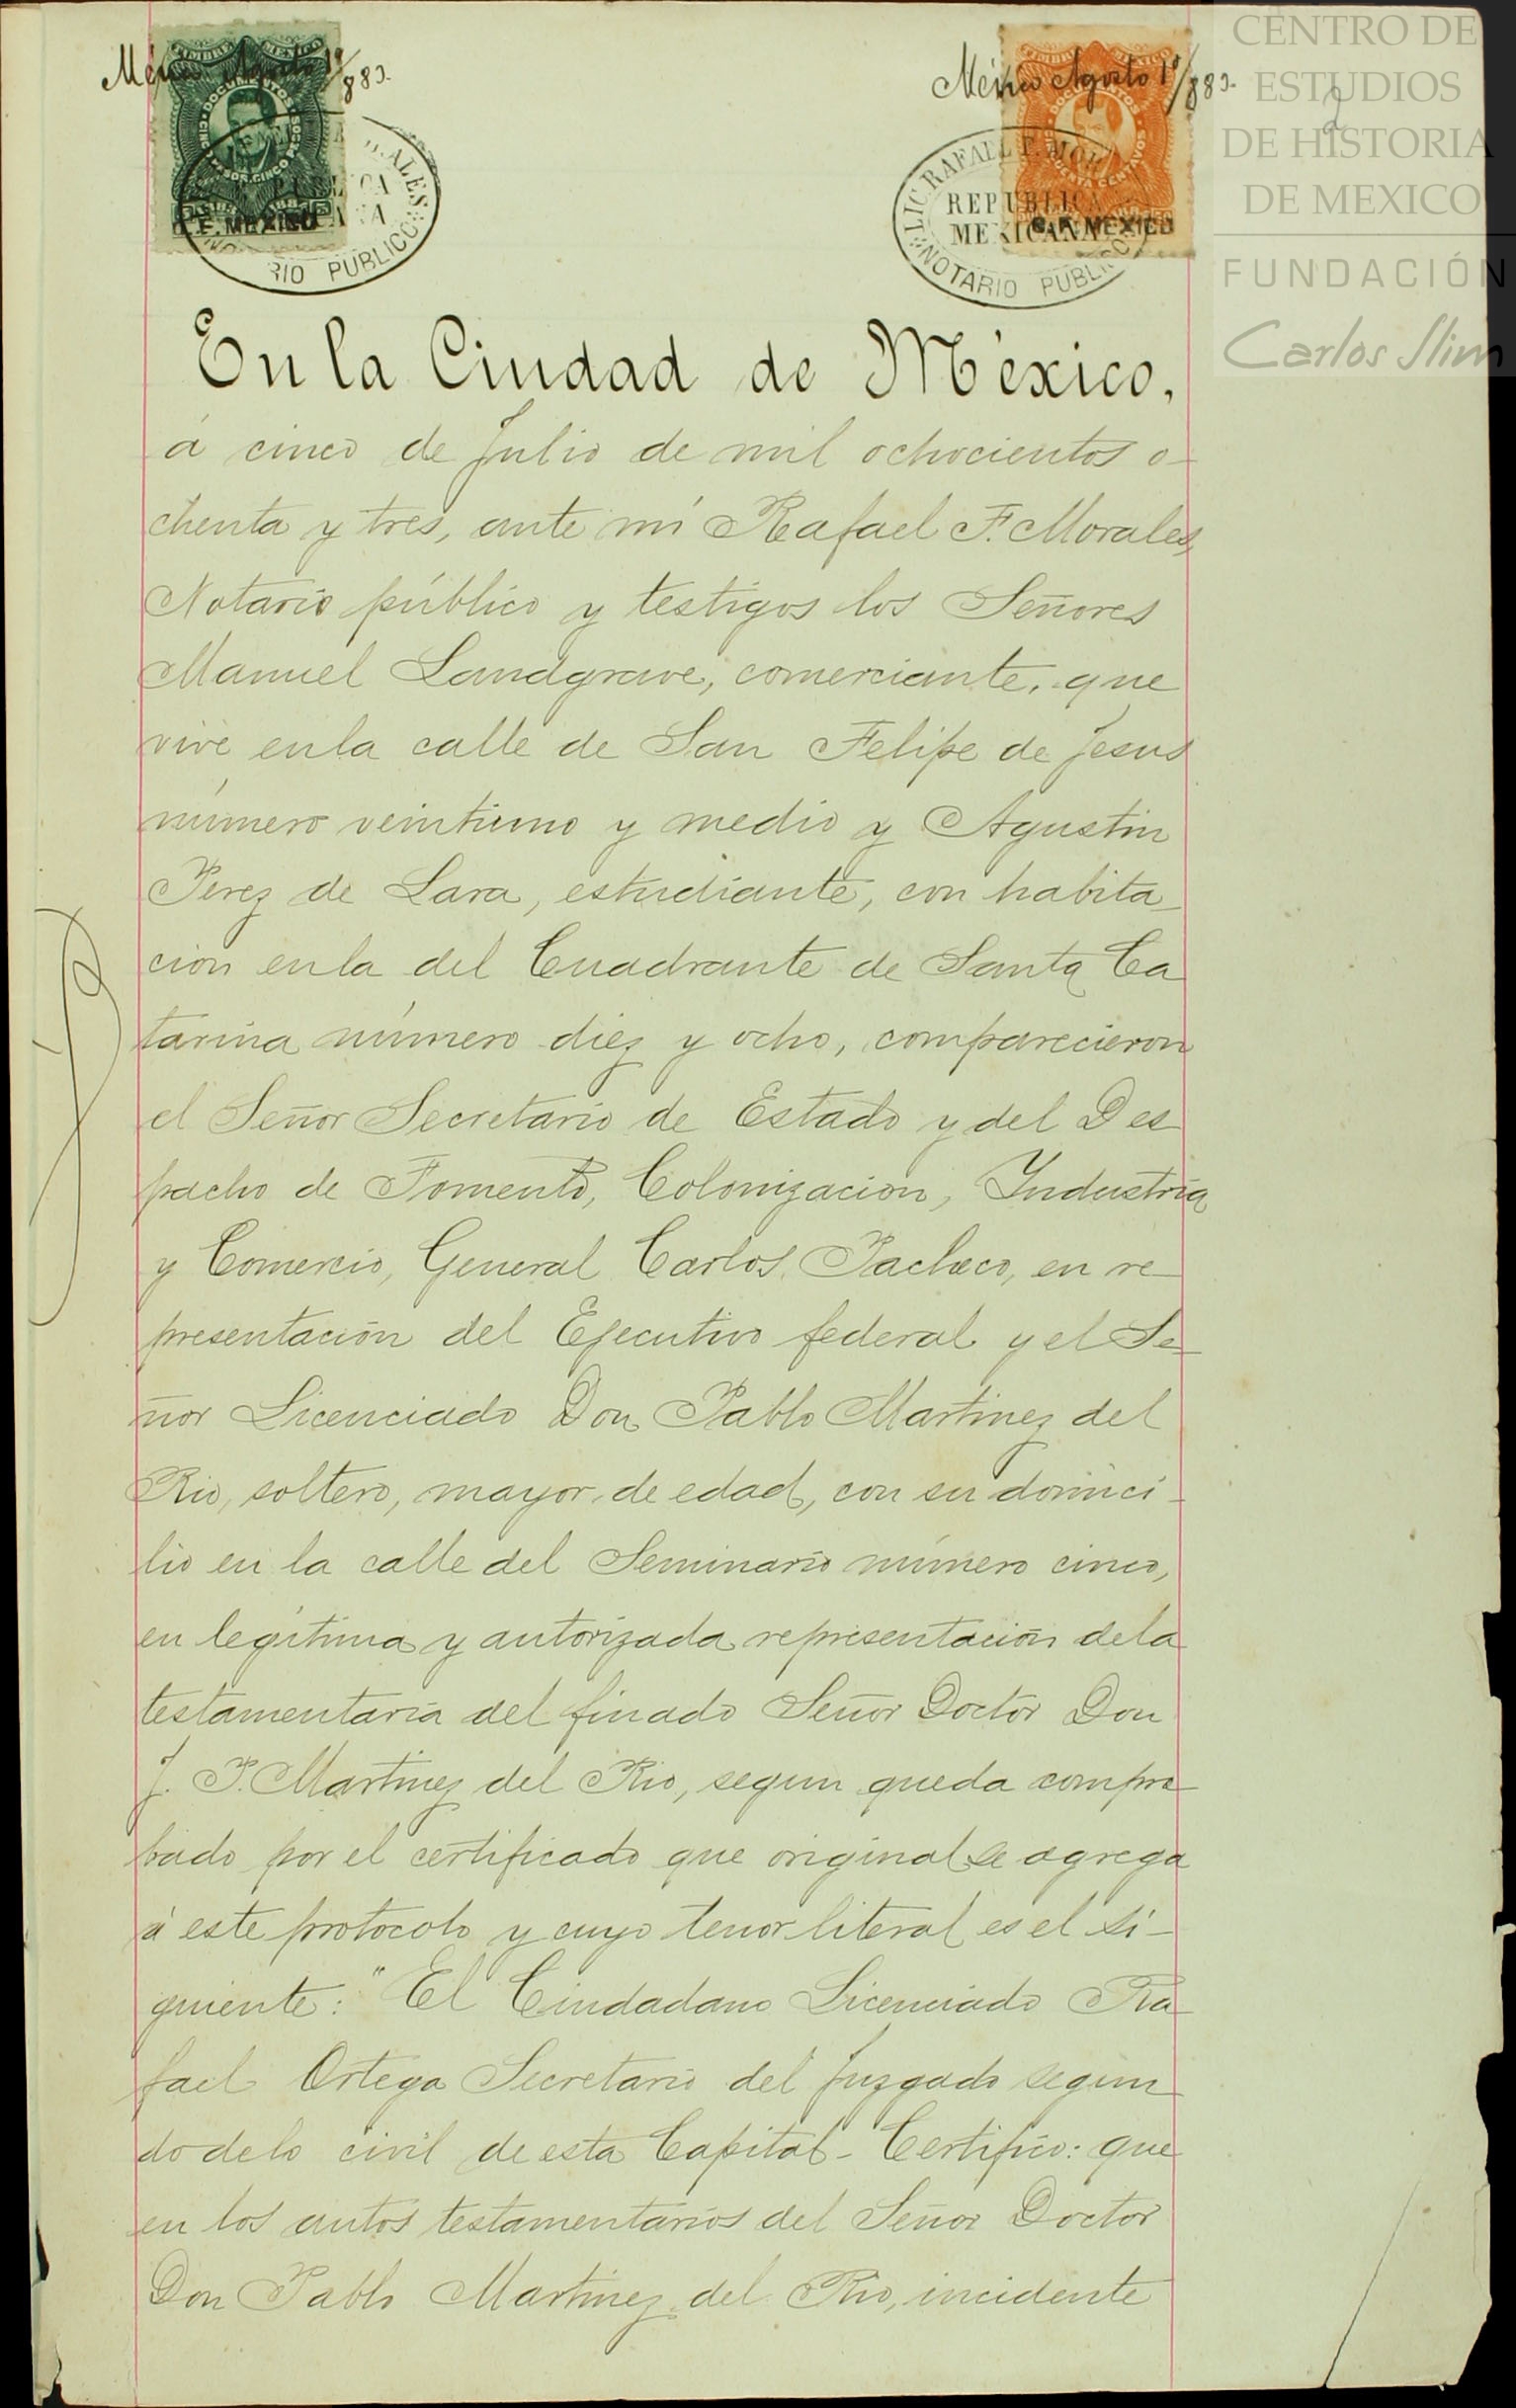 México Agosto 1º/883.
México Agosto 1º/883.
CENTRO DE
ESTUDIOS
DE HISTORIA
DE MEXICO
FUNDACIÓN
Carlos Slim
2
DOCUMENTOS
F. MEXICO
RIO PUBLICO
LIC. RAFAEL F. MO
REPUBLICA
MEXICANA
NOTARIO PUBLICO
MEXICO
En la Ciudad de México,
á cinco de Julio de mil ochocientos o-
chenta y tres, ante mí Rafael F. Morales,
Notario público y testigos los Señores
Manuel Landgrave, comerciante, que
vive en la calle de San Felipe de Jesus
número veintiuno y medio y Agustin
Perez de Lara, estudiante, con habita-
cion en la del Cuadrante de Santa Ca
tarina número diez y ocho, comparecieron
el Señor Secretario de Estado y del Des
pacho de Fomento, Colonizacion, Industria
y Comercio, General Carlos Pacheco, en re-
presentación del Ejecutivo federal y el Se-
ñor Licenciado Don Pablo Martinez del
Rio, soltero, mayor de edad, con su domici-
lio en la calle del Seminario número cinco,
en legítima y autorizada representación de la
testamentaría del finado Señor Doctor Don
J. P. Martinez del Rio, segun queda compro-
bado por el certificado que original se agrega
á este protocolo y cuyo tenor literal es el si-
guiente: "El Ciudadano Licenciado Ra-
fael Ortega Secretario del Juzgado segun-
do de lo civil de esta Capital - Certifico: que
en los autos testamentarios del Señor Doctor
Don Pablo Martinez del Rio, incidente